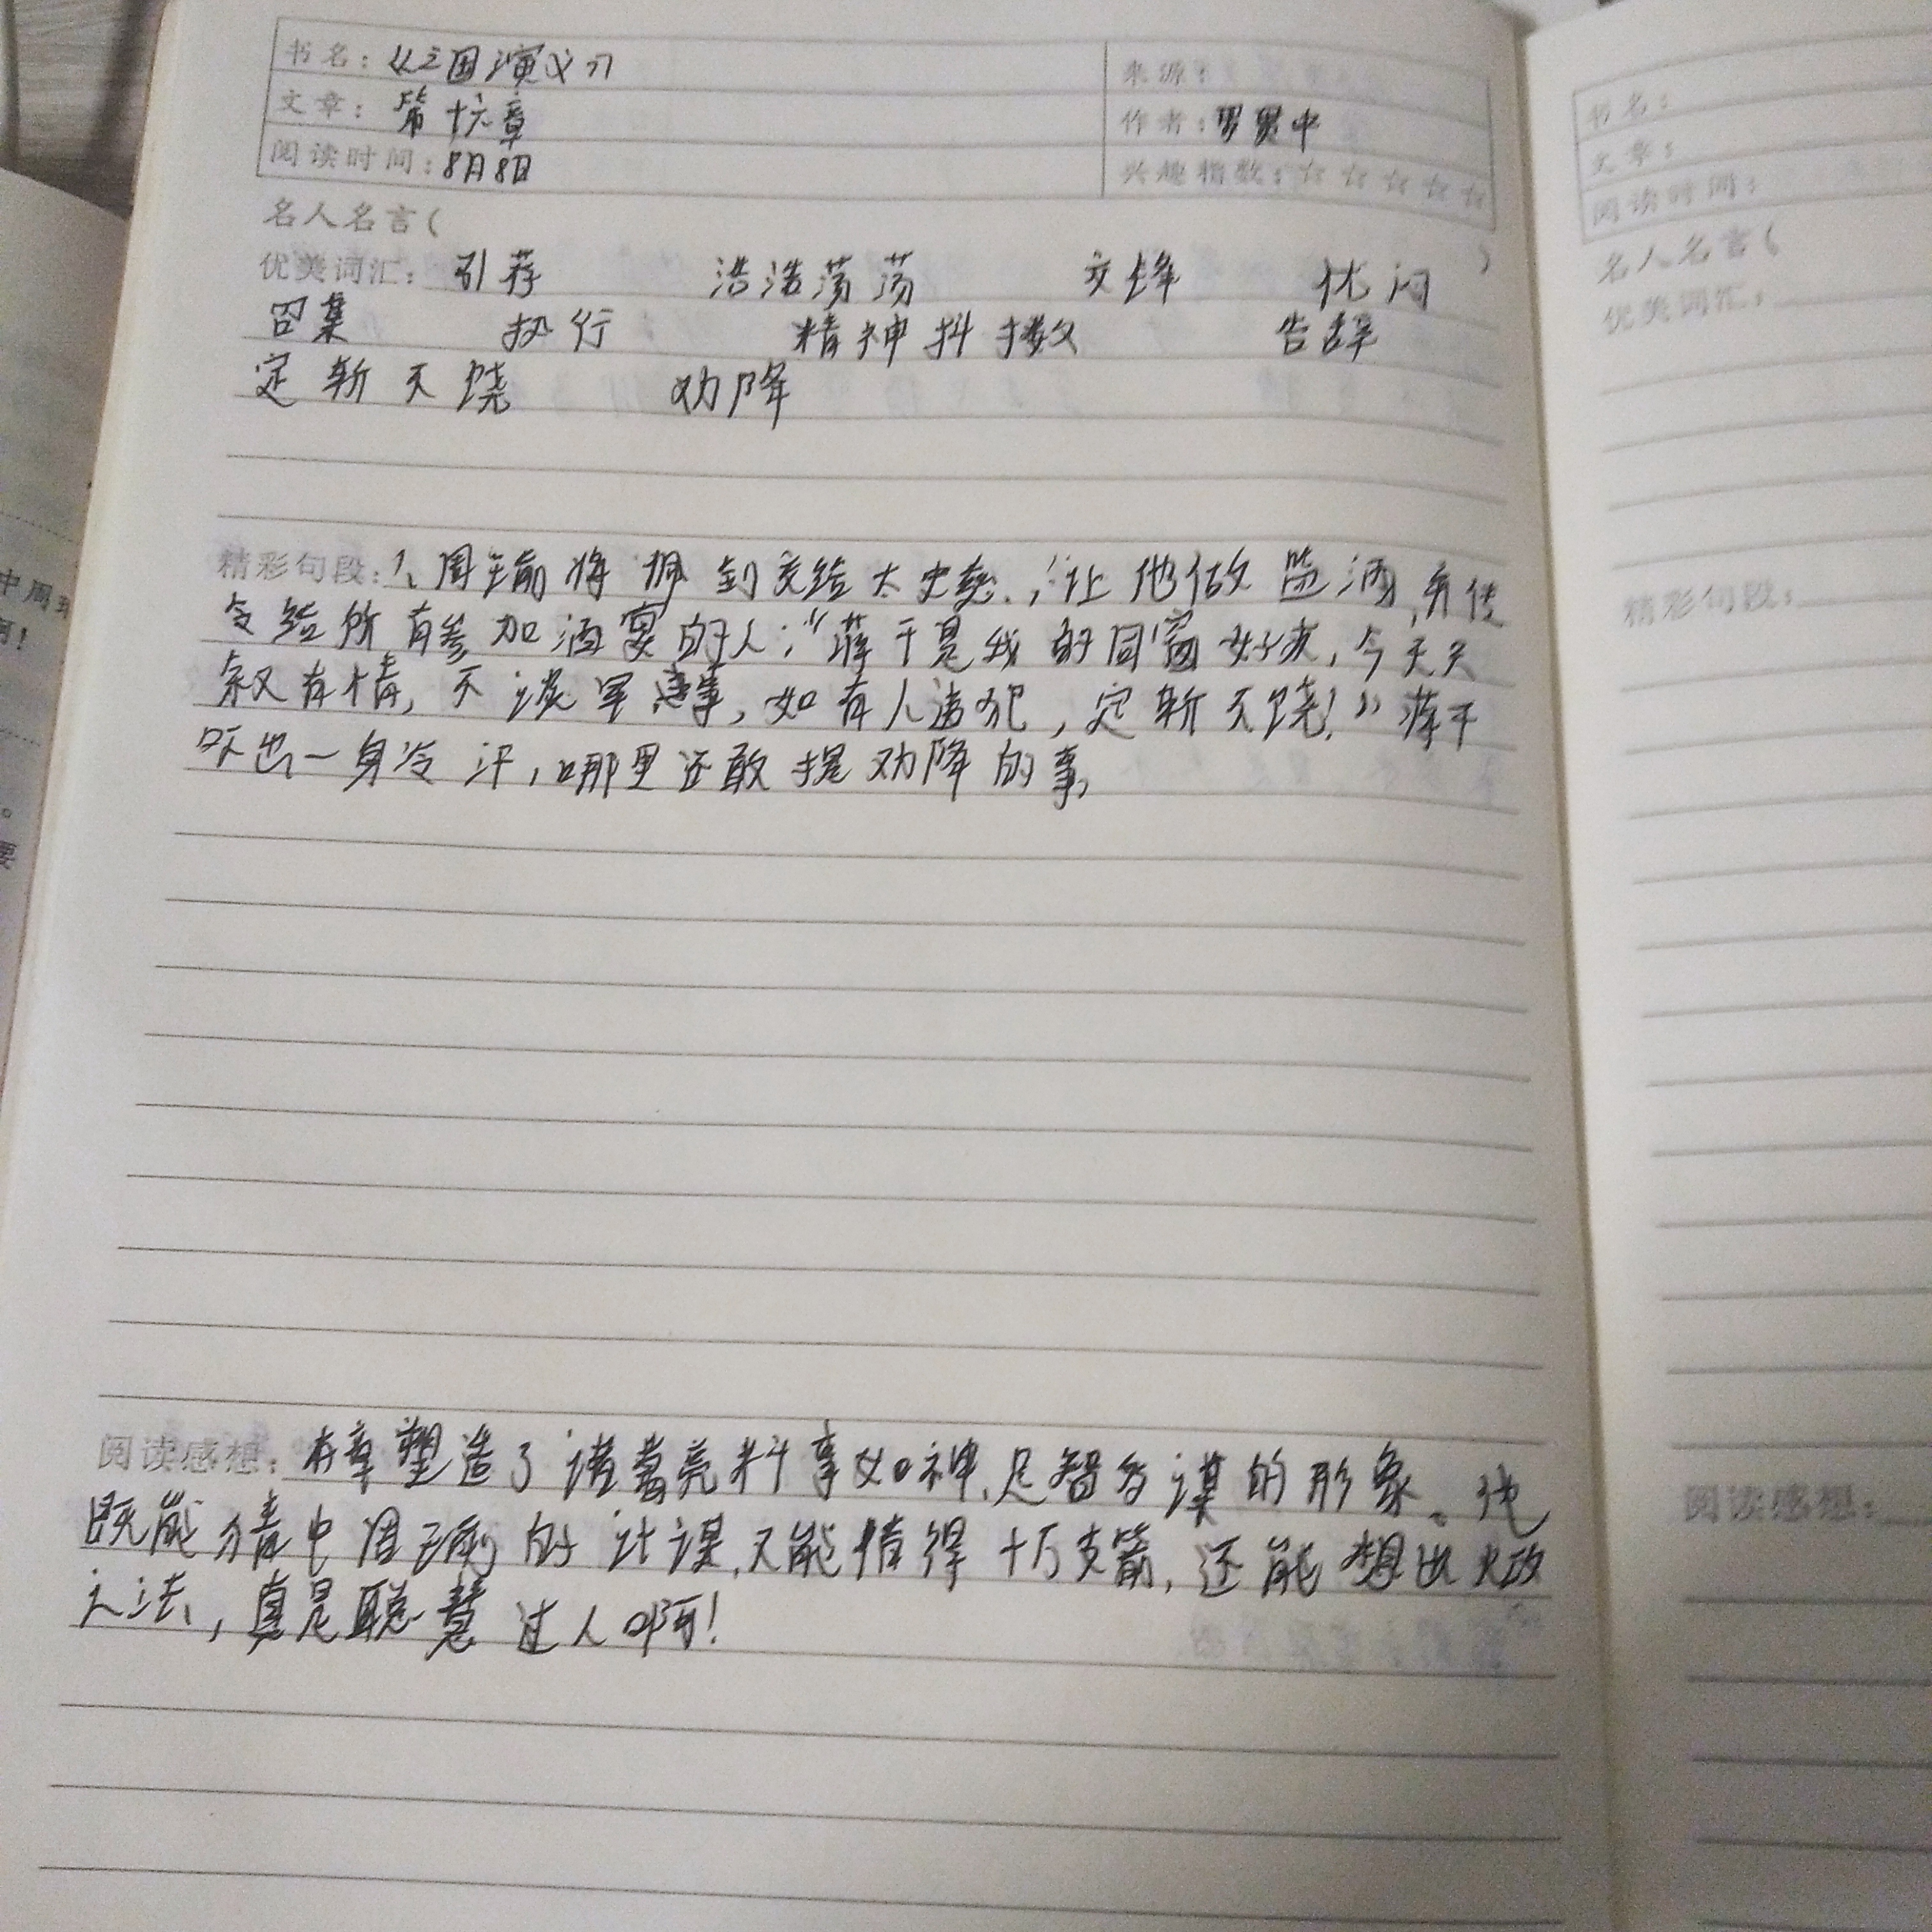 书名：《三国演义》
来源：
文章：第十六章
作者：罗贯中
阅读时间：8月8日
兴趣指数：☆☆☆☆☆
名人名言（ ）
优美词汇：引荐 浩浩荡荡 交锋 忧闷
召集 执行 精神抖擞 告辞
定斩不饶 劝降
精彩句段：1、周瑜将佩剑交给太史慈，让他做监酒，并传
令给所有参加酒宴的人：“蒋干是我的同窗好友，今天只
叙友情，不谈军事，如有人违犯，定斩不饶！”蒋干
吓出一身冷汗，哪里还敢提劝降的事。
阅读感想：本章塑造了诸葛亮料事如神、足智多谋的形象。他
既能猜中周瑜的计谋，又能借得十万支箭，还能想出火攻
之法，真是聪慧过人啊！
书名：
文章：
阅读时间：
名人名言（
优美词汇：
精彩句段：
阅读感想：
中周
啊！
。
要